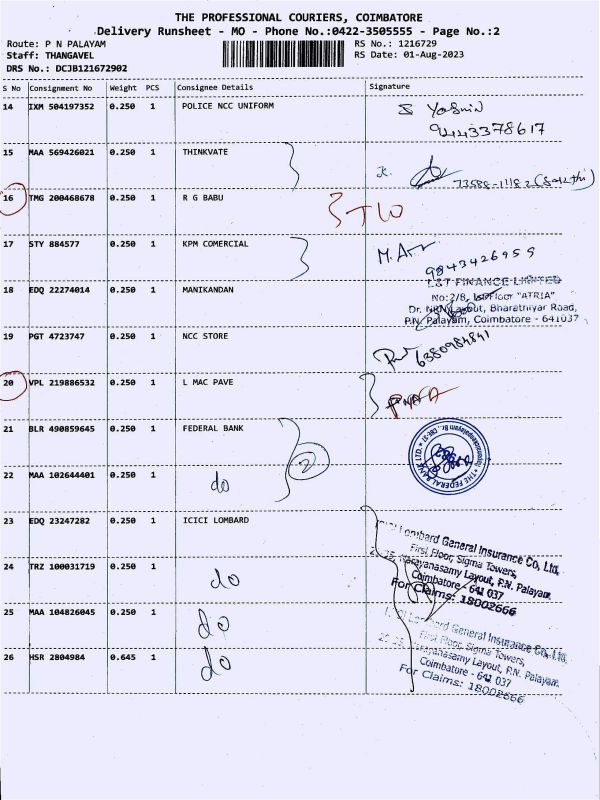 THE PROFESSIONAL COURIERS, COIMBATORE
Delivery Runsheet - MO - Phone No.:0422-3505555 - Page No.:2
Route: P N PALAYAM
RS No.: 1216729
Staff: THANGAVEL
RS Date: 01-Aug-2023
DRS No.: DCJB121672902
S No Consignment No Weight PCS Consignee Details Signature
14 IXM 504197352 0.250 1 POLICE NCC UNIFORM
Yasmin
9443378617
15 MAA 569426021 0.250 1 THINKVATE
K.
16 TMG 200468678 0.250 1 R G BABU
17 STY 884577 0.250 1 KPM COMERCIAL
9843426955
L&T FINANCE LIMITED
18 EDQ 22274014 0.250 1 MANIKANDAN
No:2/8, Ist Floor "ATRIA"
Dr. NRN Layout, Bharathiyar Road,
P.N. Palayam, Coimbatore - 641037
19 PGT 4723747 0.250 1 NCC STORE
6380984841
20 VPL 219886532 0.250 1 L MAC PAVE
21 BLR 490859645 0.250 1 FEDERAL BANK
2
THE FEDERAL BANK LTD.
22 MAA 102644401 0.250 1 do
23 EDQ 23247282 0.250 1 ICICI LOMBARD
Lombard General Insurance Co. Ltd.
First Floor, Sigma Towers,
Narayanasamy Layout, P.N. Palayam,
Coimbatore - 641 037
For Claims: 18002666
24 TRZ 100031719 0.250 1 do
25 MAA 104826045 0.250 1 do
Lombard General Insurance Co. Ltd.
First Floor, Sigma Towers,
Narayanasamy Layout, P.N. Palayam,
Coimbatore - 641 037
For Claims: 18002666
26 HSR 2804984 0.645 1 do